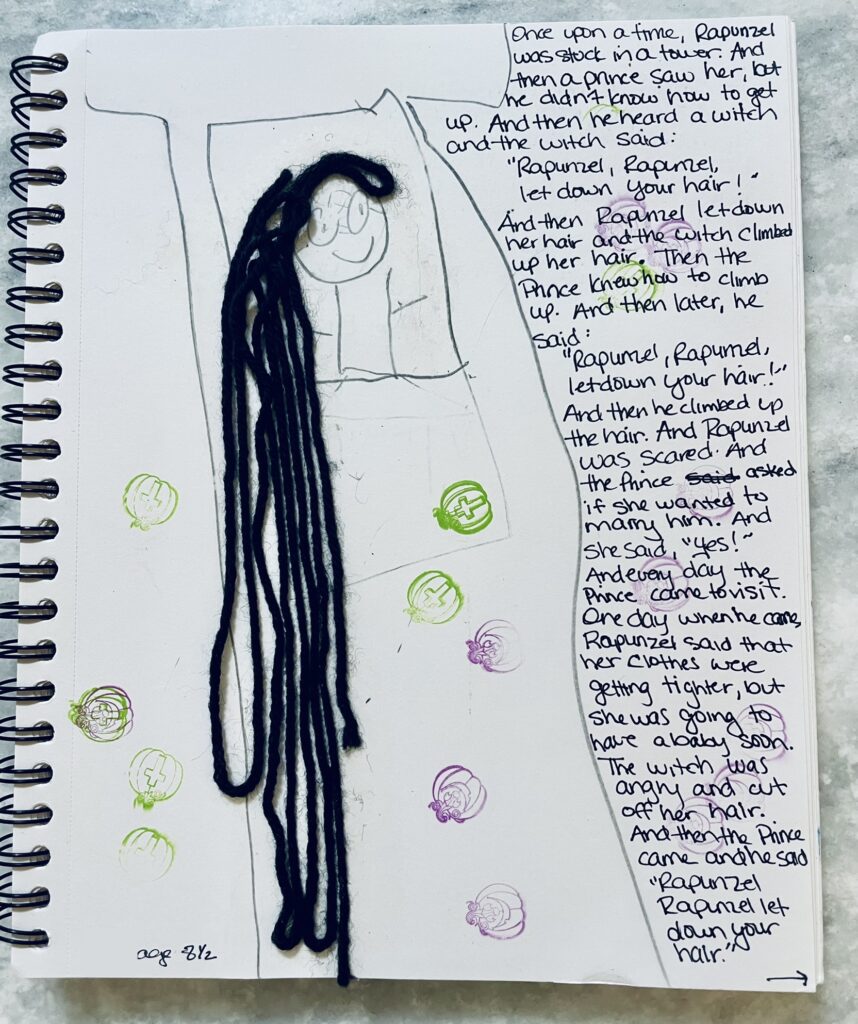 Once upon a time, Rapunzel
was stuck in a tower. And
then a prince saw her, but
he didn't know how to get
up. And then he heard a witch
and the witch said:
"Rapunzel, Rapunzel,
let down your hair!"
And then Rapunzel let down
her hair and the witch climbed
up her hair. Then the
Prince knew how to climb
up. And then later, he
said:
"Rapunzel, Rapunzel,
let down your hair!"
And then he climbed up
the hair. And Rapunzel
was scared. And
the Prince said asked
if she wanted to
marry him. And
she said, "yes!"
And every day the
Prince came to visit.
One day when he came,
Rapunzel said that
her clothes were
getting tighter, but
she was going to
have a baby soon.
The witch was
angry and cut
off her hair.
And then the Prince
came and he said
"Rapunzel
Rapunzel let
down your
hair."
age 8½